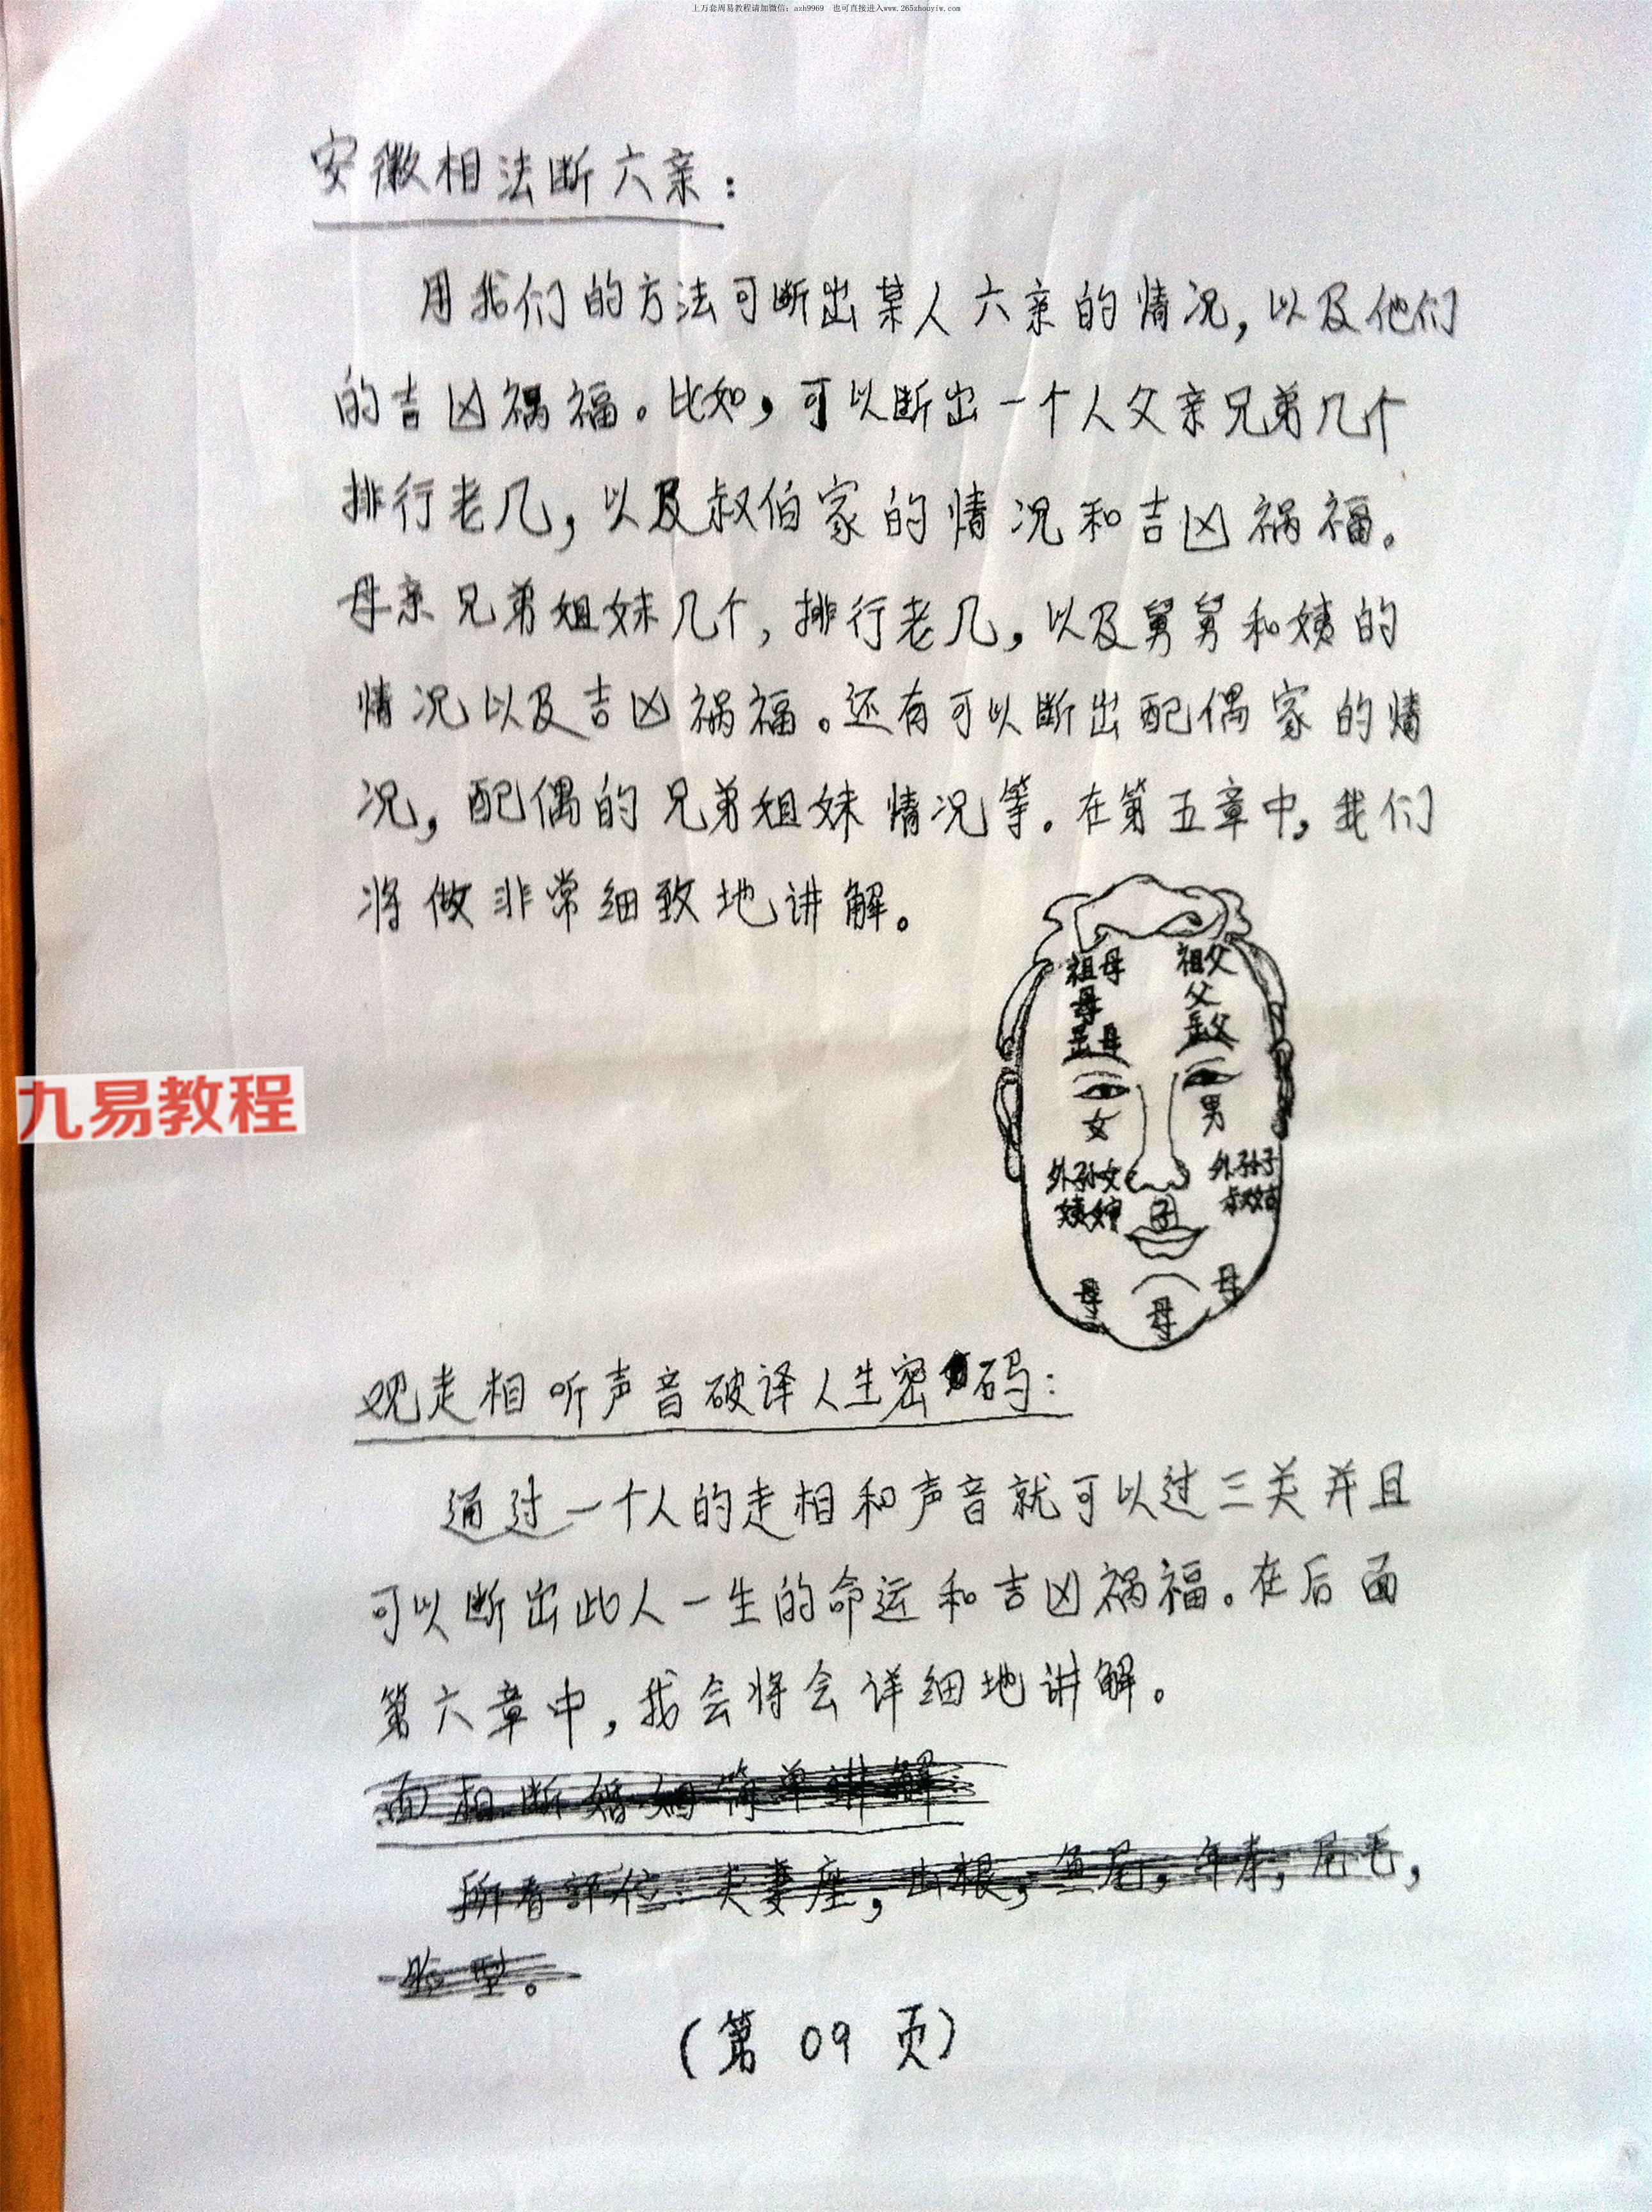 上万套周易教程请加微信：azh9969 也可直接进入www.265zhouyiw.com
安徽相法断六亲：
用我们的方法可断出某人六亲的情况，以及他们
的吉凶祸福。比如，可以断出一个人父亲兄弟几个
排行老几，以及叔伯家的情况和吉凶祸福。
母亲兄弟姐妹几个，排行老几，以及舅舅和姨的
情况以及吉凶祸福。还有可以断出配偶家的情
况，配偶的兄弟姐妹情况等。在第五章中，我们
将做非常细致地讲解。
祖母 祖父
母 父
岳母 岳父
女 男
外孙女 外孙子
子
母 母 母
九易教程
观走相听声音破译人生密码：
通过一个人的走相和声音就可以过三关并且
可以断出此人一生的命运和吉凶祸福。在后面
第六章中，我会将会详细地讲解。
面相断婚姻简单讲解：
所看部位：夫妻座，山根，鱼尾，年寿，眉毛，
脸型。
（第 09 页）